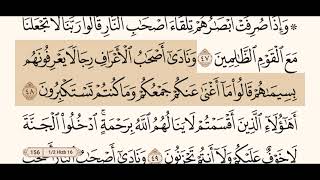 ۞ وَإِذَا صُرِفَتْ أَبْصَٰرُهُمْ تِلْقَآءَ أَصْحَٰبِ ٱلنَّارِ قَالُوا۟ رَبَّنَا لَا تَجْعَلْنَا
مَعَ ٱلْقَوْمِ ٱلظَّٰلِمِينَ ٤٧ وَنَادَىٰٓ أَصْحَٰبُ ٱلْأَعْرَافِ رِجَالًا يَعْرِفُونَهُم
بِسِيمَىٰهُمْ قَالُوا۟ مَآ أَغْنَىٰ عَنكُمْ جَمْعُكُمْ وَمَا كُنتُمْ تَسْتَكْبِرُونَ ٤٨
أَهَٰٓؤُلَآءِ ٱلَّذِينَ أَقْسَمْتُمْ لَا يَنَالُهُمُ ٱللَّهُ بِرَحْمَةٍ ۚ ٱدْخُلُوا۟ ٱلْجَنَّةَ
لَا خَوْفٌ عَلَيْكُمْ وَلَآ أَنتُمْ تَحْزَنُونَ ٤٩ وَنَادَىٰٓ أَصْحَٰبُ ٱلنَّارِ
156 1/2 Hizb 16